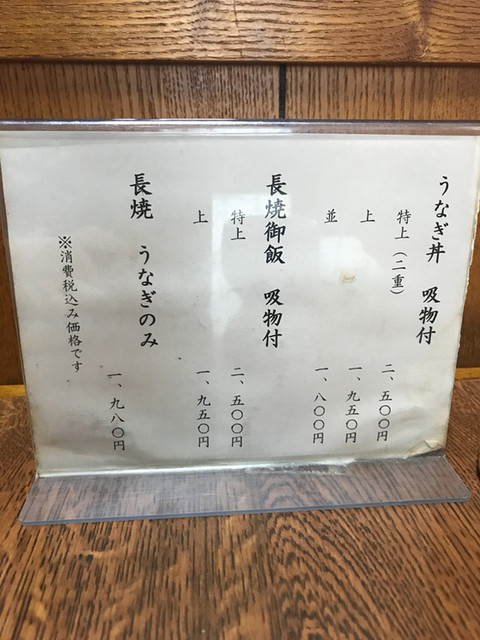 うなぎ丼 吸物付
特上(二重) 二、五〇〇円
上 一、九五〇円
並 一、八〇〇円
長焼御飯 吸物付
特上 二、五〇〇円
上 一、九五〇円
長焼 うなぎのみ
一、九八〇円
※消費税込み価格です